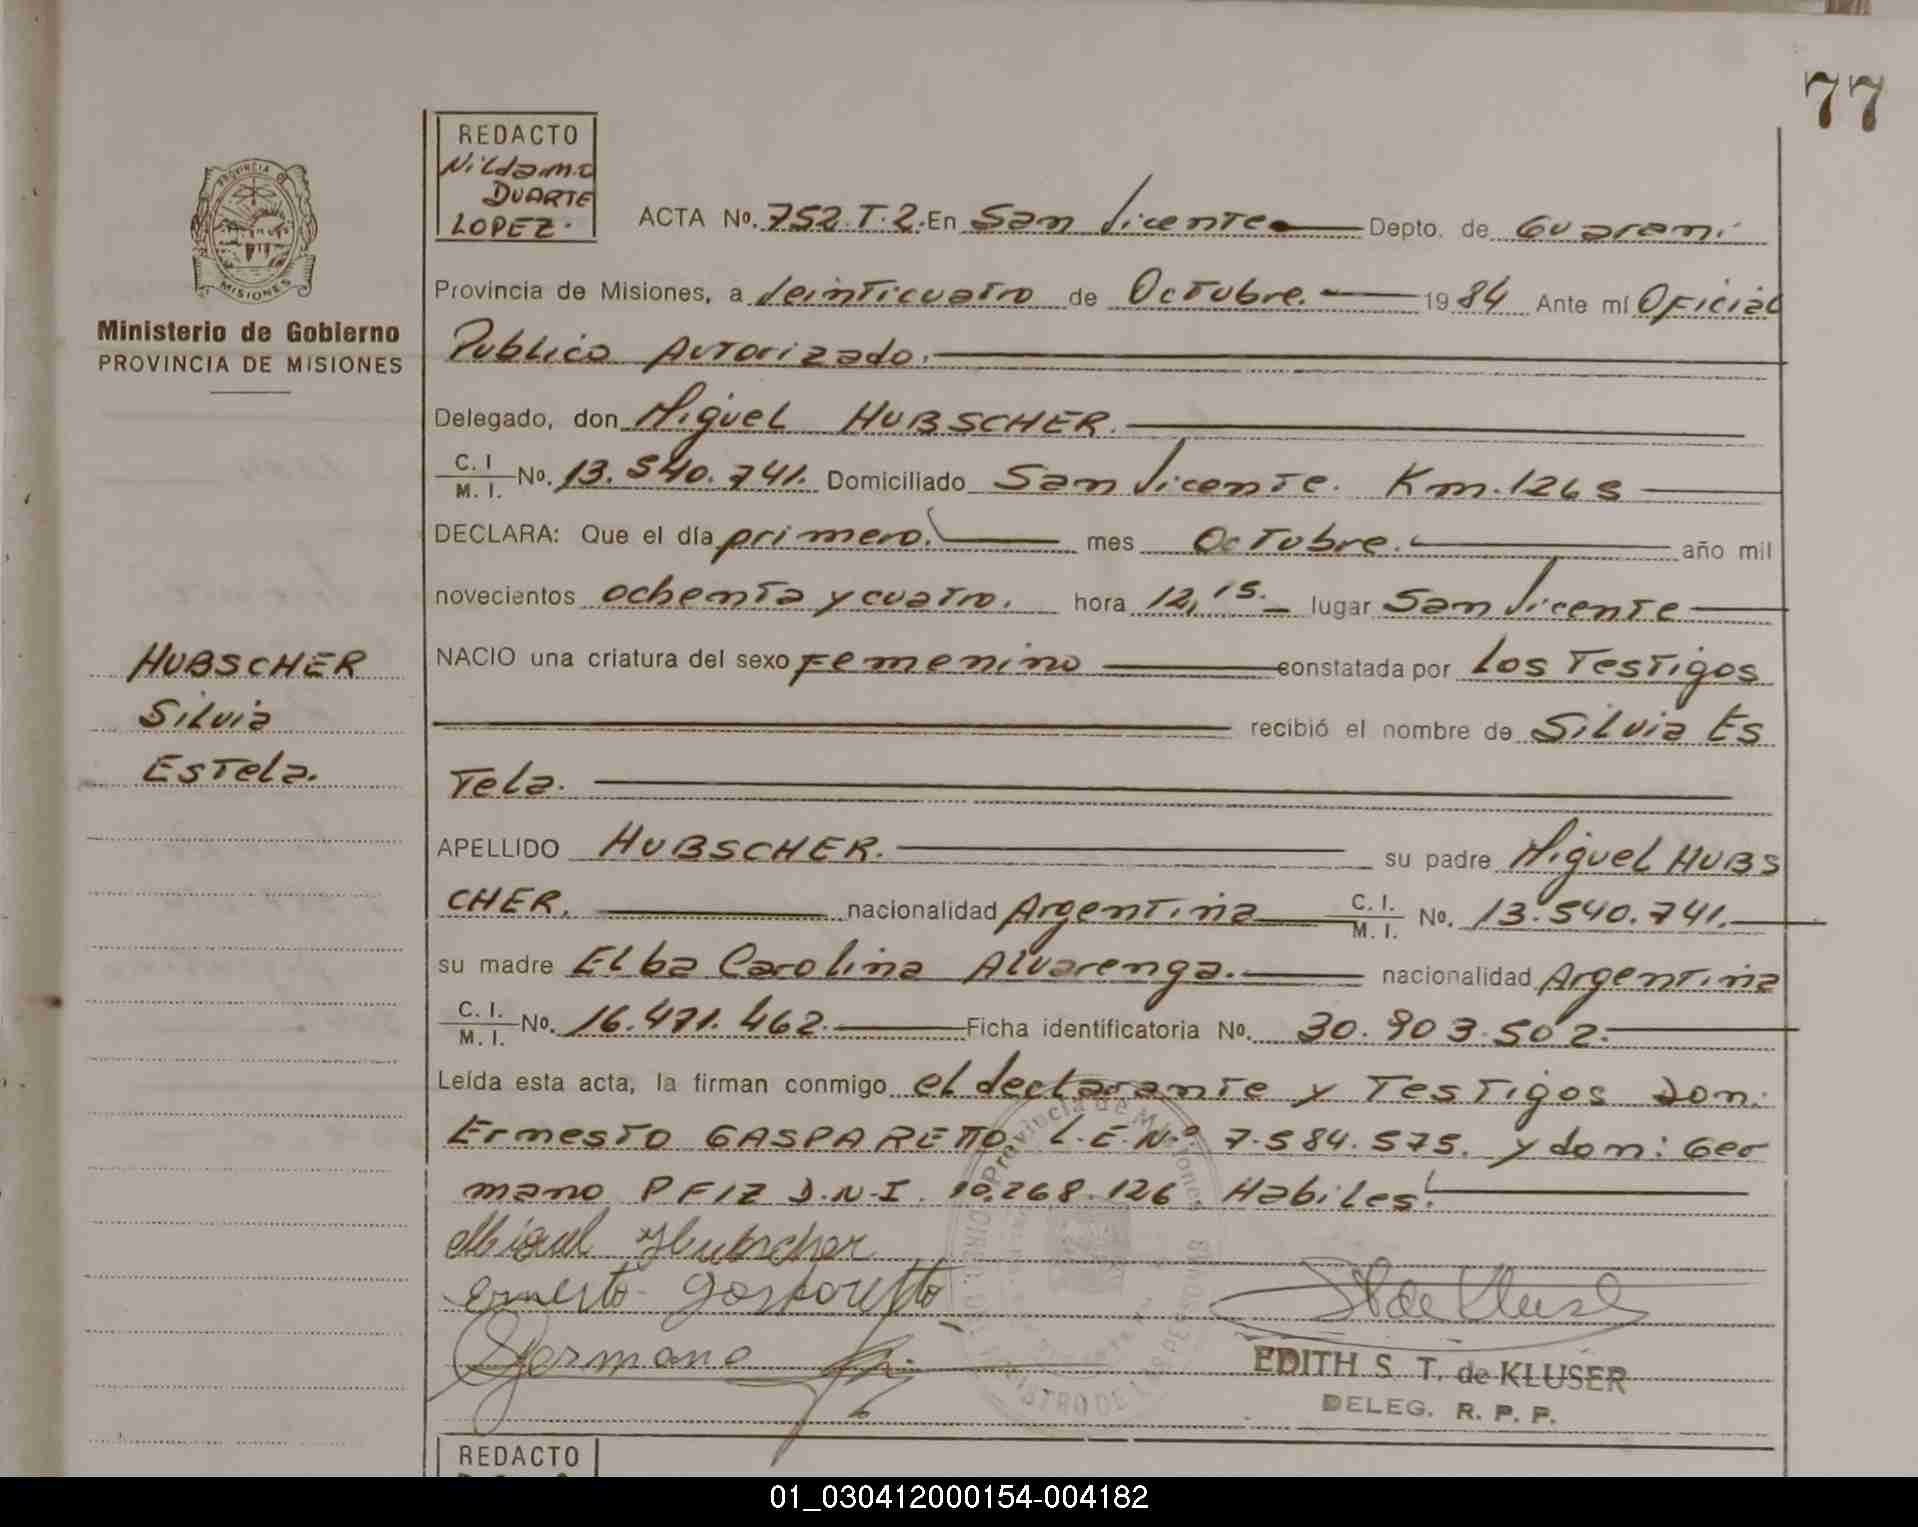 77
REDACTO
Nilda M.C
DUARTE
LOPEZ.
PROVINCIA DE
MISIONES
Ministerio de Gobierno
PROVINCIA DE MISIONES
ACTA No. 752.T.2. En San Vicente Depto. de Guaraní
Provincia de Misiones, a Veinticuatro de Octubre. 1984 Ante mí Oficial
Publico Autorizado.
Delegado, don Miguel HUBSCHER.
C. I. M. I. No. 13.540.741. Domiciliado San Vicente. Km.126 s
DECLARA: Que el día primero. mes Octubre. año mil
novecientos ochenta y cuatro. hora 12,15. lugar San Vicente
HUBSCHER
Silvia
Estela.
NACIO una criatura del sexo Femenino constatada por Los Testigos
recibió el nombre de Silvia Es
Tela.
APELLIDO HUBSCHER. su padre Miguel HUBS
CHER. nacionalidad Argentina C. I. M. I. No. 13.540.741.
su madre Elba Carolina Alvarenga. nacionalidad Argentina
C. I. M. I. No. 16.471.462. Ficha identificatoria No. 30.903.502.
Leída esta acta, la firman conmigo el declarante y Testigos Don:
Ernesto GASPARETTO. L.E.N.º 7.584.575. y don: Ger
mano PFIZ D.N.I. 10.268.126 Habiles.
Miguel Hubscher
Ernesto Gasparetto
Germano
Provincia de Misiones
EDITH S. T. de KLUSER
DELEG. R. P. P.
REDACTO
01_030412000154-004182